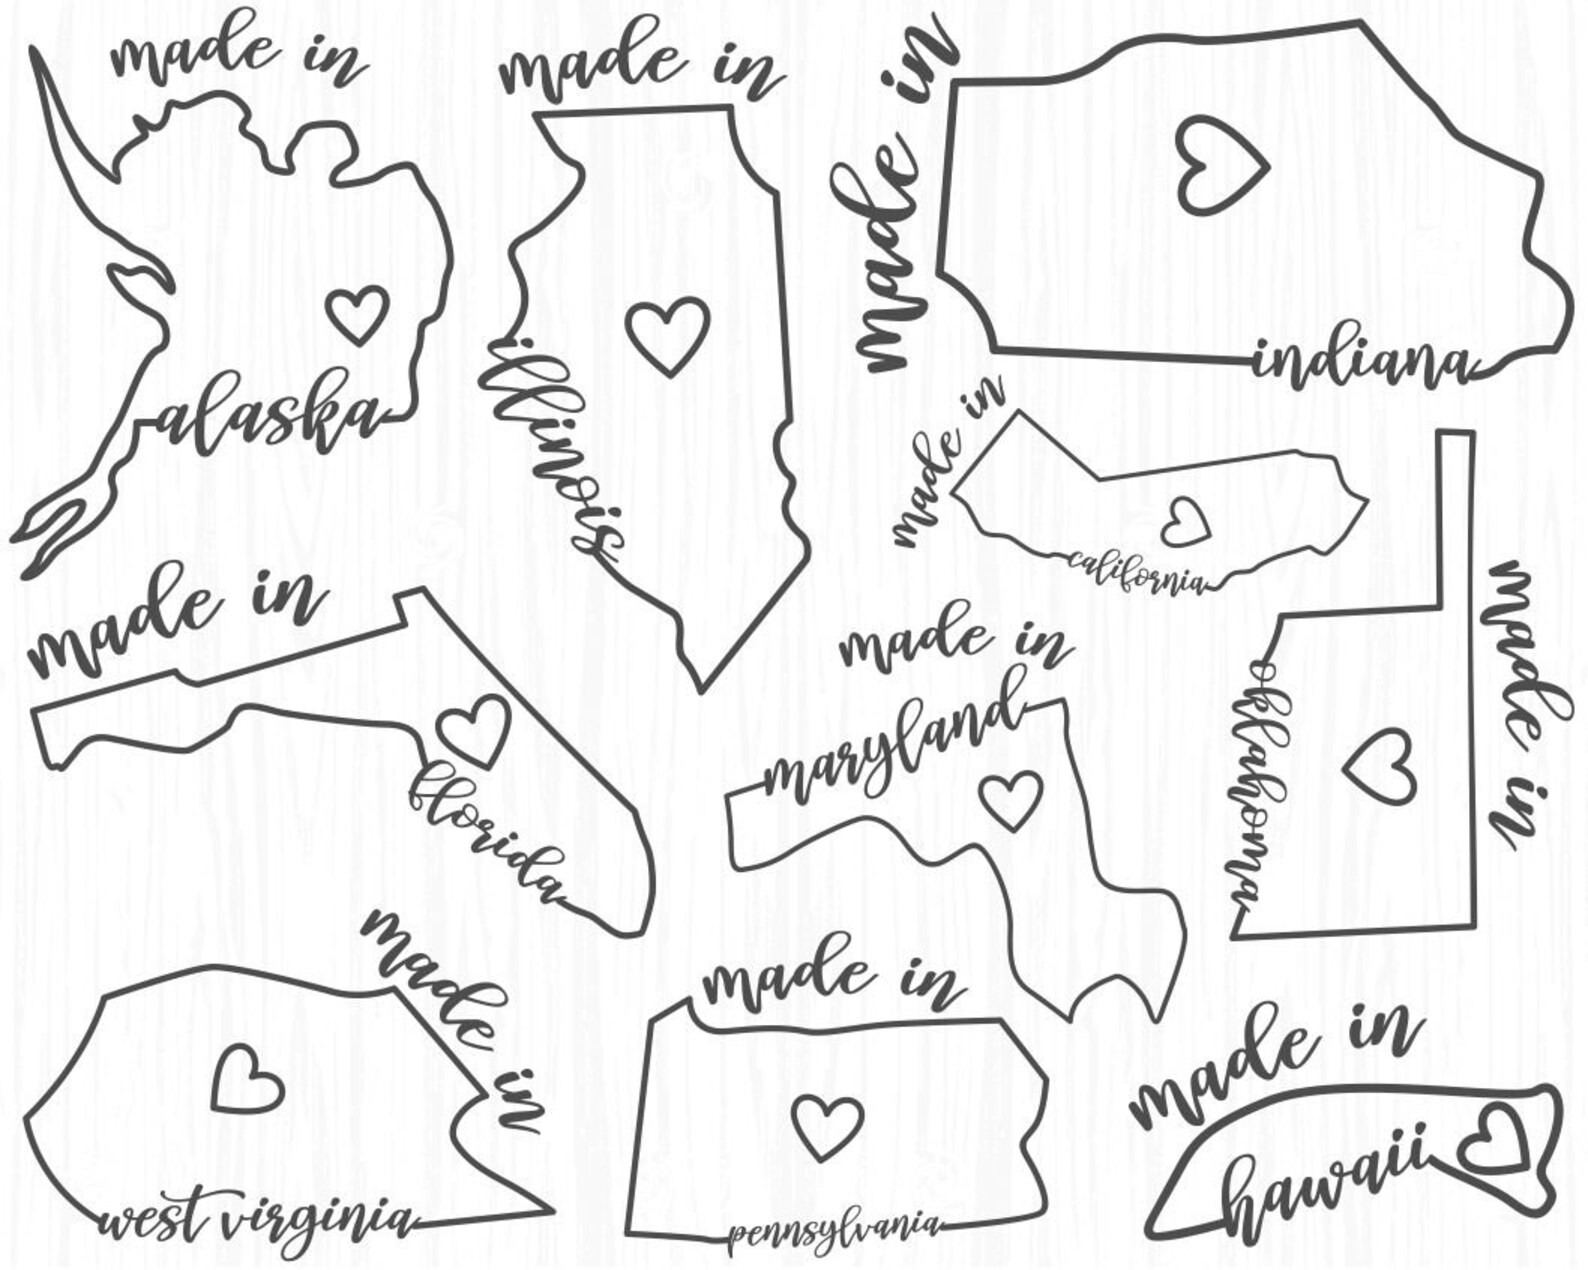 made in
alaska
made in
illinois
made in
indiana
made in
california
made in
florida
made in
maryland
made in
oklahoma
made in
west virginia
made in
pennsylvania
made in
hawaii